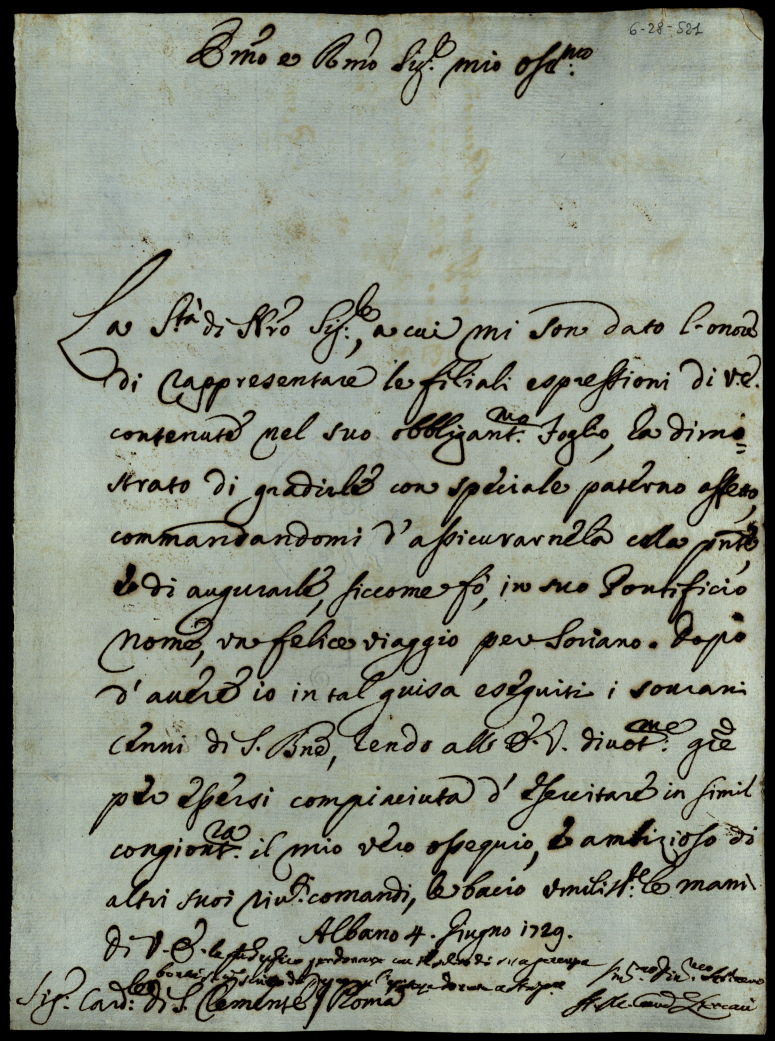 6-28-521
Emo e Rmo Sig.r mio oss.mo
La Stà di Nro Sig.re, a cui mi son dato l'onore
di rappresentare le filiali espressioni di V.E.
contenute nel suo obbligant.mo Foglio, ha dimo=
strato di gradirle con speciale paterno affetto,
commandandomi d'assicurarnela colla pnte,
e di augurarle, siccome fò, in suo Pontificio
nome, un felice viaggio per Soriano. Dopo
d'avere io in tal guisa eseguiti i sovrani
cenni di S. Bne, rendo all' E.V. divot.me gre
per essersi compiaciuta d'esercitare in simil
congiont.ra il mio vero ossequio, e ambizioso di
altri suoi riv.i comandi, le bacio umilis.te le mani
di V.E.
Albano 4. Giugno 1729.
Sig.r Card.le di S. Clemente / Roma